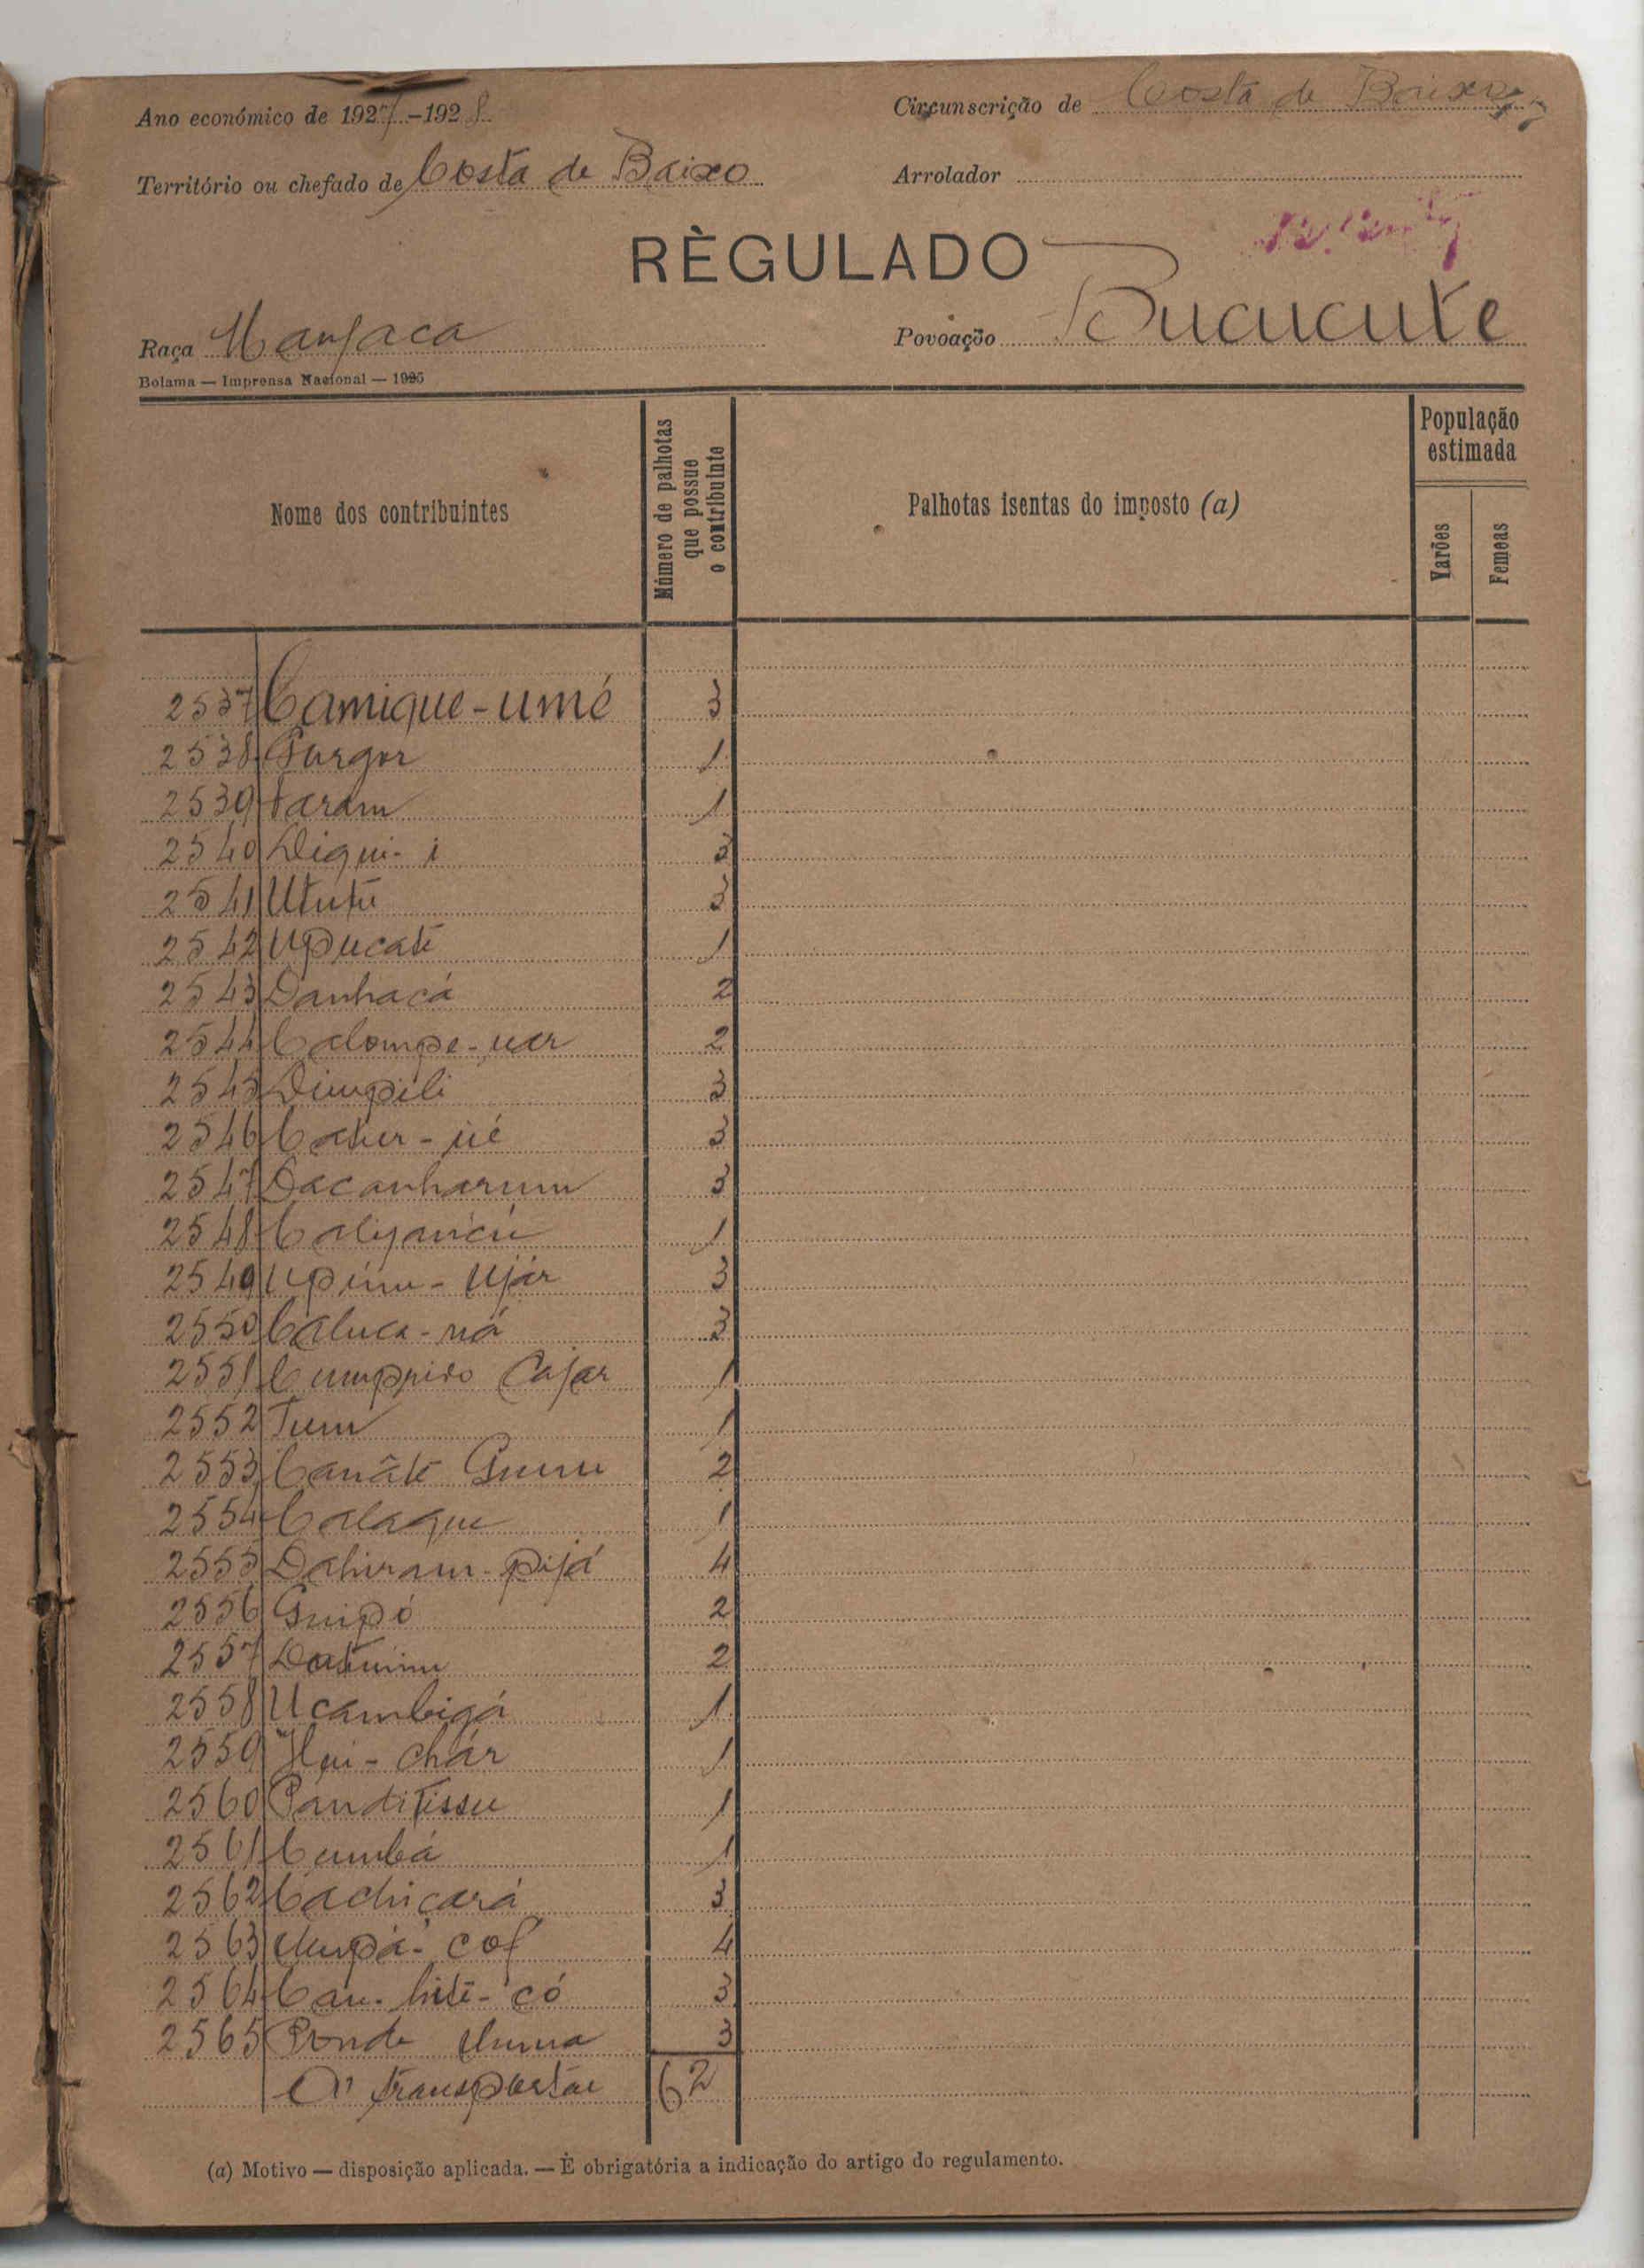 Ano económico de 1927-1928
Circunscrição de Costa de Baixo
Território ou chefado de Costa de Baixo
Arrolador
RÈGULADO
Raça Manjaca
Povoação Bucucute
Bolama — Imprensa Nacional — 1925
Nome dos contribuintes
Número de palhotas que possue o contribuinte
Palhotas isentas do imposto (a)
População estimada
Varões
Femeas
2537 Camique-umé 3
2538 Gurgor 1
2539 Taram 1
2540 Diqui-i 3
2541 Ututu 3
2542 Upucate 1
2543 Danhacá 2
2544 Calompe-uar 2
2545 Dimpili 3
2546 3
2547 Dacanharum 3
2548 1
2549 3
2550 Caluca-ná 3
2551 Cumprido Cajar 1
2552 Tum 1
2553 Canâte 2
2554 Calaque 1
2555 4
2556 Guipó 2
2557 2
2558 Ucambigá 1
2559 1
2560 Panditissu 1
2561 Cumbá 1
2562 Cachicará 3
2563 4
2564 3
2565 Ponde 3
A transportar 62
(a) Motivo — disposição aplicada. — È obrigatória a indicação do artigo do regulamento.